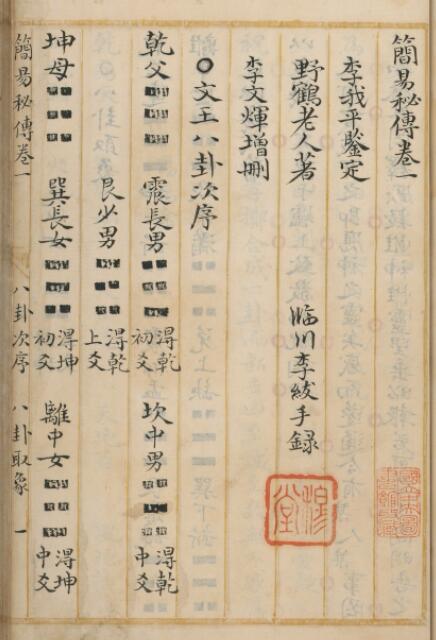 簡易秘傳卷一
李我平鑒定
野鶴老人著 臨川李紱手錄
李文輝增刪
○文王八卦次序
乾父 震長男 得乾初爻 坎中男 得乾中爻
艮少男 得乾上爻
坤母 巽長女 得坤初爻 離中女 得坤中爻
簡易秘傳卷一 八卦次序 八卦取象 一
穆堂